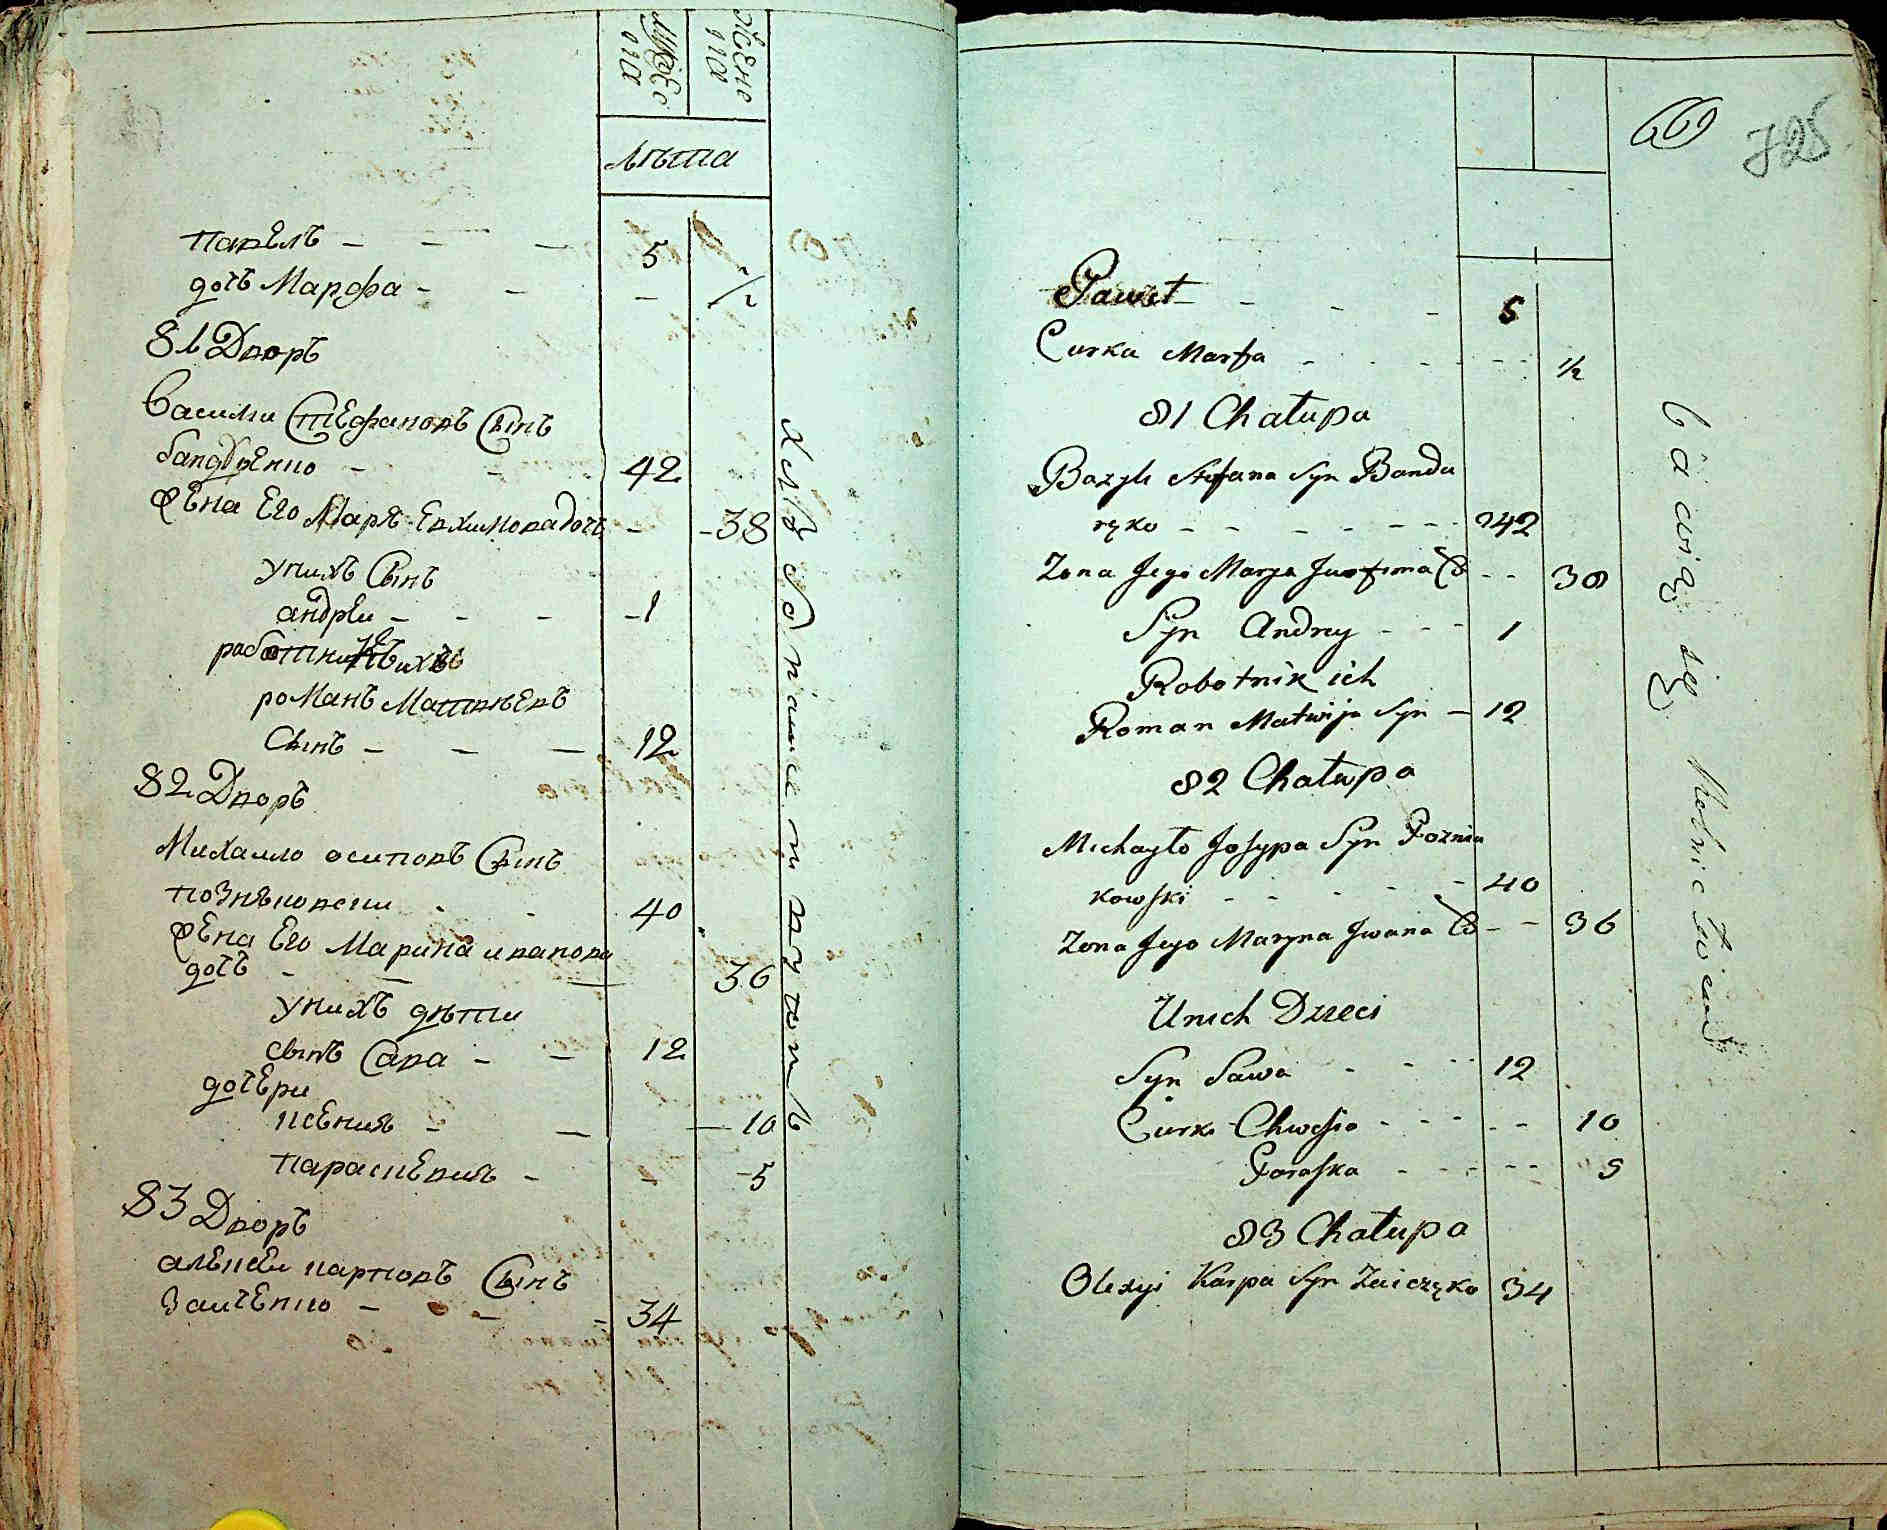 Мужес
ска
Женс
ска
лѣта
Павелъ - - - 5
дочь Марфа - - - 1/2
81 Дворъ
Василии Стефановъ Сынъ
бандуренко - - 42
Жена Его Маря Евхимова дочь - - 38
У нихъ Сынъ
андреи - - - 1
работникъ ихъ
романъ Матвѣевъ
Сынъ - - - 12
82 Дворъ
Михаило осиповъ Сынъ
Позняковски - - 40
Жена Его Марина иванова
дочь - - - 36
У нихъ дѣти
сынъ Сава - - 12
дочери
ксения - - - 10
Параскевия - - 5
83 Дворъ
алексеи карповъ Сынъ
Заиченко - - - 34
хлѣбопашествомъ
66
725
Paweł - - - 5
Curka Marfa - - - 1/2
81 Chałupa
Bazyli Stefana Syn Bandu
ręko - - - - - - 42
Zona Jego Marya Juofima C - - 38
Syn Andrey - - - 1
Robotnik ich
Roman Matwija Syn - 12
82 Chałupa
Michayło Josypa Syn Poznia
kowski - - - - - 40
Zona Jego Maryna Jwana C - - 36
U nich Dzieci
Syn Sawa - - - 12
Curk Chwesia - - - - - 10
Paraska - - - - - 5
83 Chałupa
Olexyi Karpa Syn Zaiczęko 34
bawią się Rolnictwem